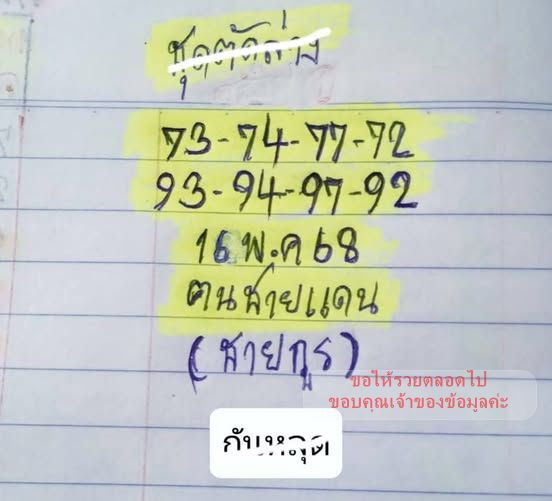 ชุดตัดล่าง
73-74-77-72
93-94-97-92
16 พ.ค 68
คนชายแดน
(สายกูร)
ขอให้รวยตลอดไป
ขอบคุณเจ้าของข้อมูลค่ะ
กันหลุด